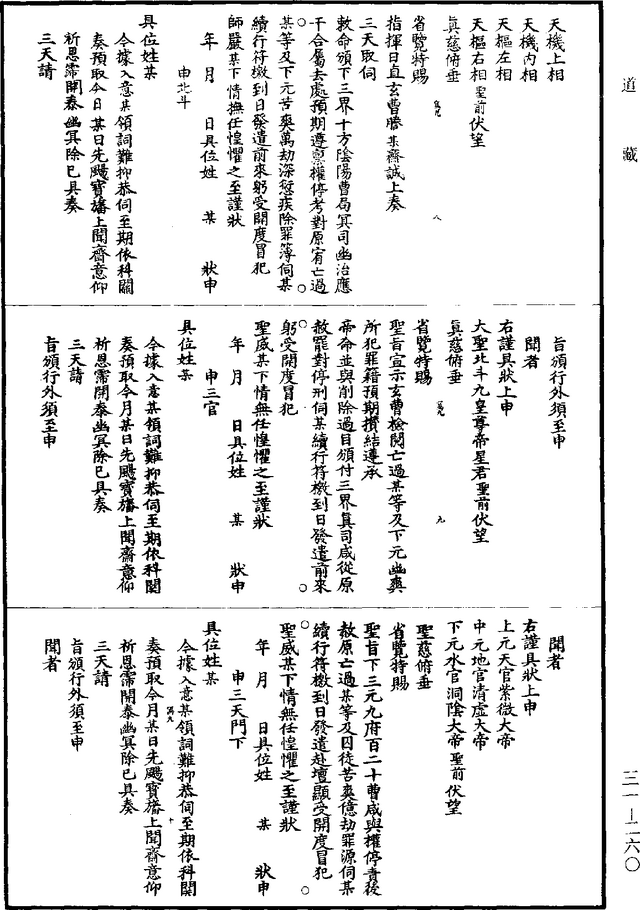 道藏
天機上相
天機內相
天樞左相
天樞右相聖前伏望
眞慈俯垂
省覽特賜
指揮日直玄曹牒某齋誠上奏
三天取伺
敕命頒下三界十方陰陽曹局冥司幽治應
干合屬去處預期遵稟權停考對原宥亡過
某等及下元苦爽萬劫深愆疾除罪簿伺某
續行符檄到日發遣前來躬受開度冒犯
師嚴某下情撫任惶懼之至謹狀
年月日具位姓某狀申
申北斗
具位姓某
今據入意某領詞難抑恭伺至期依科關
奏預取今日某日先颺寶旛上聞齋意仰
祈恩霈開泰幽冥除已具奏
三天請
旨頒行外須至申
聞者
右謹具狀上申
大聖北斗九皇尊帝星君聖前伏望
眞慈俯垂
省覽特賜
聖旨宣示玄曹檢閱亡過某等及下元幽爽
所犯罪籍預期攢結遷承
帝命並與削除過目頒付三界眞司咸從原
赦罷對停刑伺某續行符檄到日發遣前來
躬受開度冒犯
聖威某下情無任惶懼之至謹狀
年月日具位姓某狀申
申三官
具位姓某
今據入意某領詞難抑恭伺至期依科關
奏預取今月某日先颺寶旛上聞齋意仰
祈恩霈開泰幽冥除已具奏
三天請
旨頒行外須至申
聞者
右謹具狀上申
上元天官紫微大帝
中元地官清虛大帝
下元水官洞陰大帝聖前伏望
聖慈俯垂
省覽特賜
聖旨下三元九府百二十曹咸與權停責後
赦原亡過某等及囚徒苦爽億劫罪源伺某
續行符檄到日發遣赴壇顯受開度冒犯
聖威某下情無任惶懼之至謹狀
年月日具位姓某狀申
申三天門下
具位姓某
今據入意某領詞難抑恭伺至期依科關
奏預取今月某日先颺寶旛上聞齋意仰
祈恩霈開泰幽冥除已具奏
三天請
旨頒行外須至申
聞者
三一—二六〇